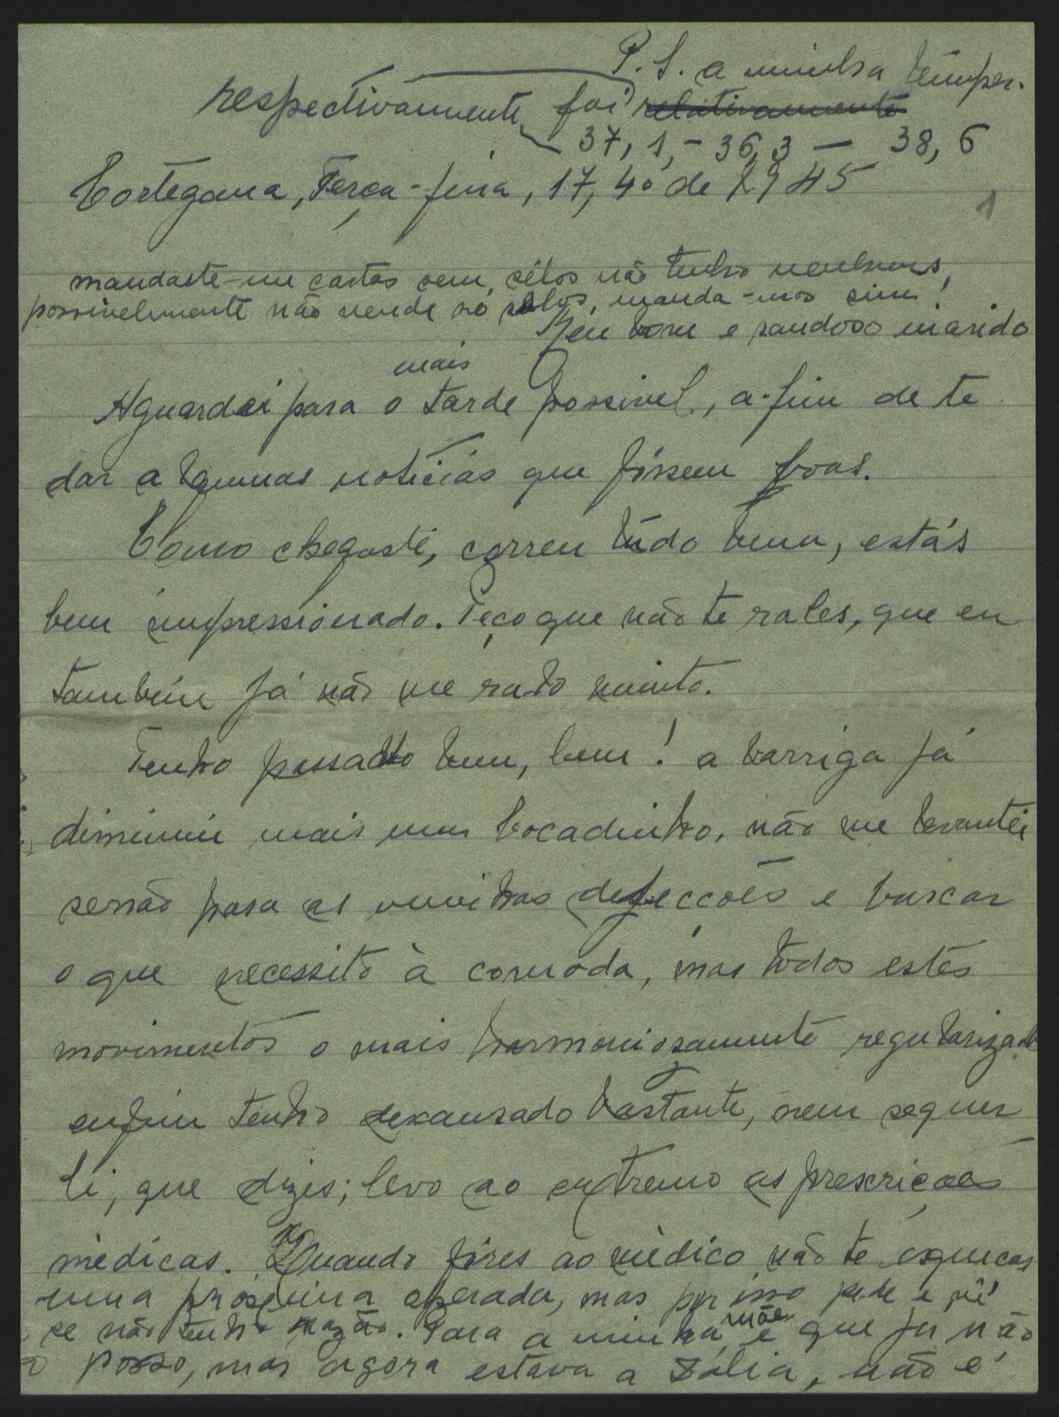 P. S. a minha temper.
respectivamente foi relativamente
37,1, - 36,3 — 38,6
Cortegana, Terça-feira, 17, 4º de 1945
1
mandaste-me cartas sem, sêlos não tenho nenhuns,
possivelmente não vende só selos, manda-mos sim!
Meu bom e saudoso marido
mais
Aguardei para o tarde possivel, a-fim de te
dar algumas notícias que fôssem boas.
Como chegaste, correu tudo bem, estás
bem impressionado. Peço que não te rales, que eu
também já não me ralo muito.
Tenho passado bem, bem! a barriga já
diminuiu mais um bocadinho, não me levantei
senão para as minhas defecções e buscar
o que necessito à comoda, mas todos estes
movimentos o mais harmoniosamente regularizado
enfim tenho descansado bastante, nem sequer
li, que dizes; levo ao extremo as prescrições
médicas. Quando fôres ao médico não te esqueças
uma prosinha agerada, mas por isso pede e vê
se não tenho razão. Para a minha mãe é que já não
o posso, mas agora estava a Zólia, não é